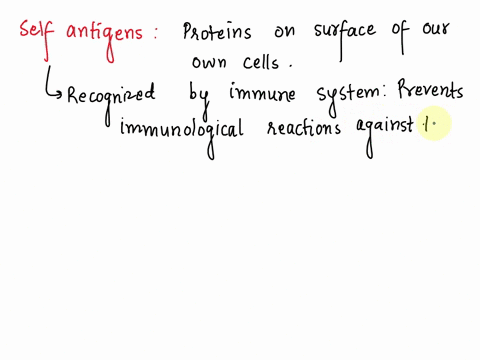 Self antigens : Proteins on surface of our
own cells.
↳ Recognized by immune system: Prevents
immunological reactions against